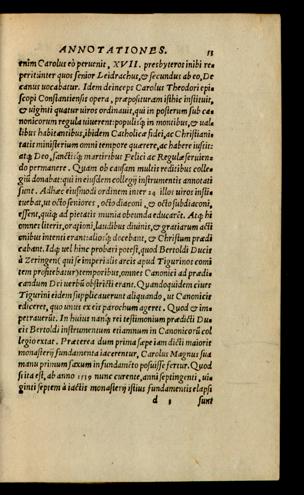 ANNOTATIONES. 13
enim Carolus eò peruenit, XVII. presbyteros inibi re-
peritúnter quos senior Leidrachus, & secundus ab eo, De
canus uocabatur. Idem deinceps Carolus Theodori epi-
scopi Constantiensis opera, præposituram isthic instituit,
& uiginti quatuor uiros ordinauit, qui in posterum sub ca-
nonicorum regula uiuerent: populisq́; in montibus, & ual-
libus habitantibus, ibidem Catholicæ fidei, ac Christiani-
tatis ministerium omni tempore quærere, ac habere iussit:
atq́; Deo, sanctisq́; martiribus Felici ac Regulæ seruien-
do permanere. Quam ob causam multi reditibus colle-
gia donabat: qui in eiusdem collegij instrumentis annotati
sunt. Adhæc eiusmodi ordinem inter 24 illos uiros insti-
tuebat, ut octo seniores, octo diaconi, & octo subdiaconi,
essent, quisq́; ad pietatis munia obeunda educarēt. Atq́; hi
omnes literis, orationi, laudibus diuinis, & gratiarum acti
onibus intenti erant: aliosq́; docebant, & Christum prædi
cabant. Idq́; uel hinc probari potest, quod Bertoldi Ducis
à Zeringen (qui se imperialis arcis apud Tigurinos comi
tem profitebatur) temporibus, omnes Canonici ad prædi-
candum Dei uerbū obstricti erant. Quandoquidem ciues
Tigurini eidem supplicauerunt aliquando, ut Canonicis
ediceret, quo unus ex eis parochum ageret. Quod & im-
petrauerūt. In huius nanq́; rei testimonium prædicti Du-
cis Bertoldi instrumentum etiamnum in Canonicorū col
legio extat. Præterea dum prima sæpe iam dicti maioris
monasterij fundamenta iacerentur, Carolus Magnus sua
manu primum saxum in fundamēto posuisse fertur. Quod
si ita est, ab anno 1539 nunc curente, anni septingenti, ui-
ginti septem à iactis monasterij istius fundamentis elapsi
d 1 sunt